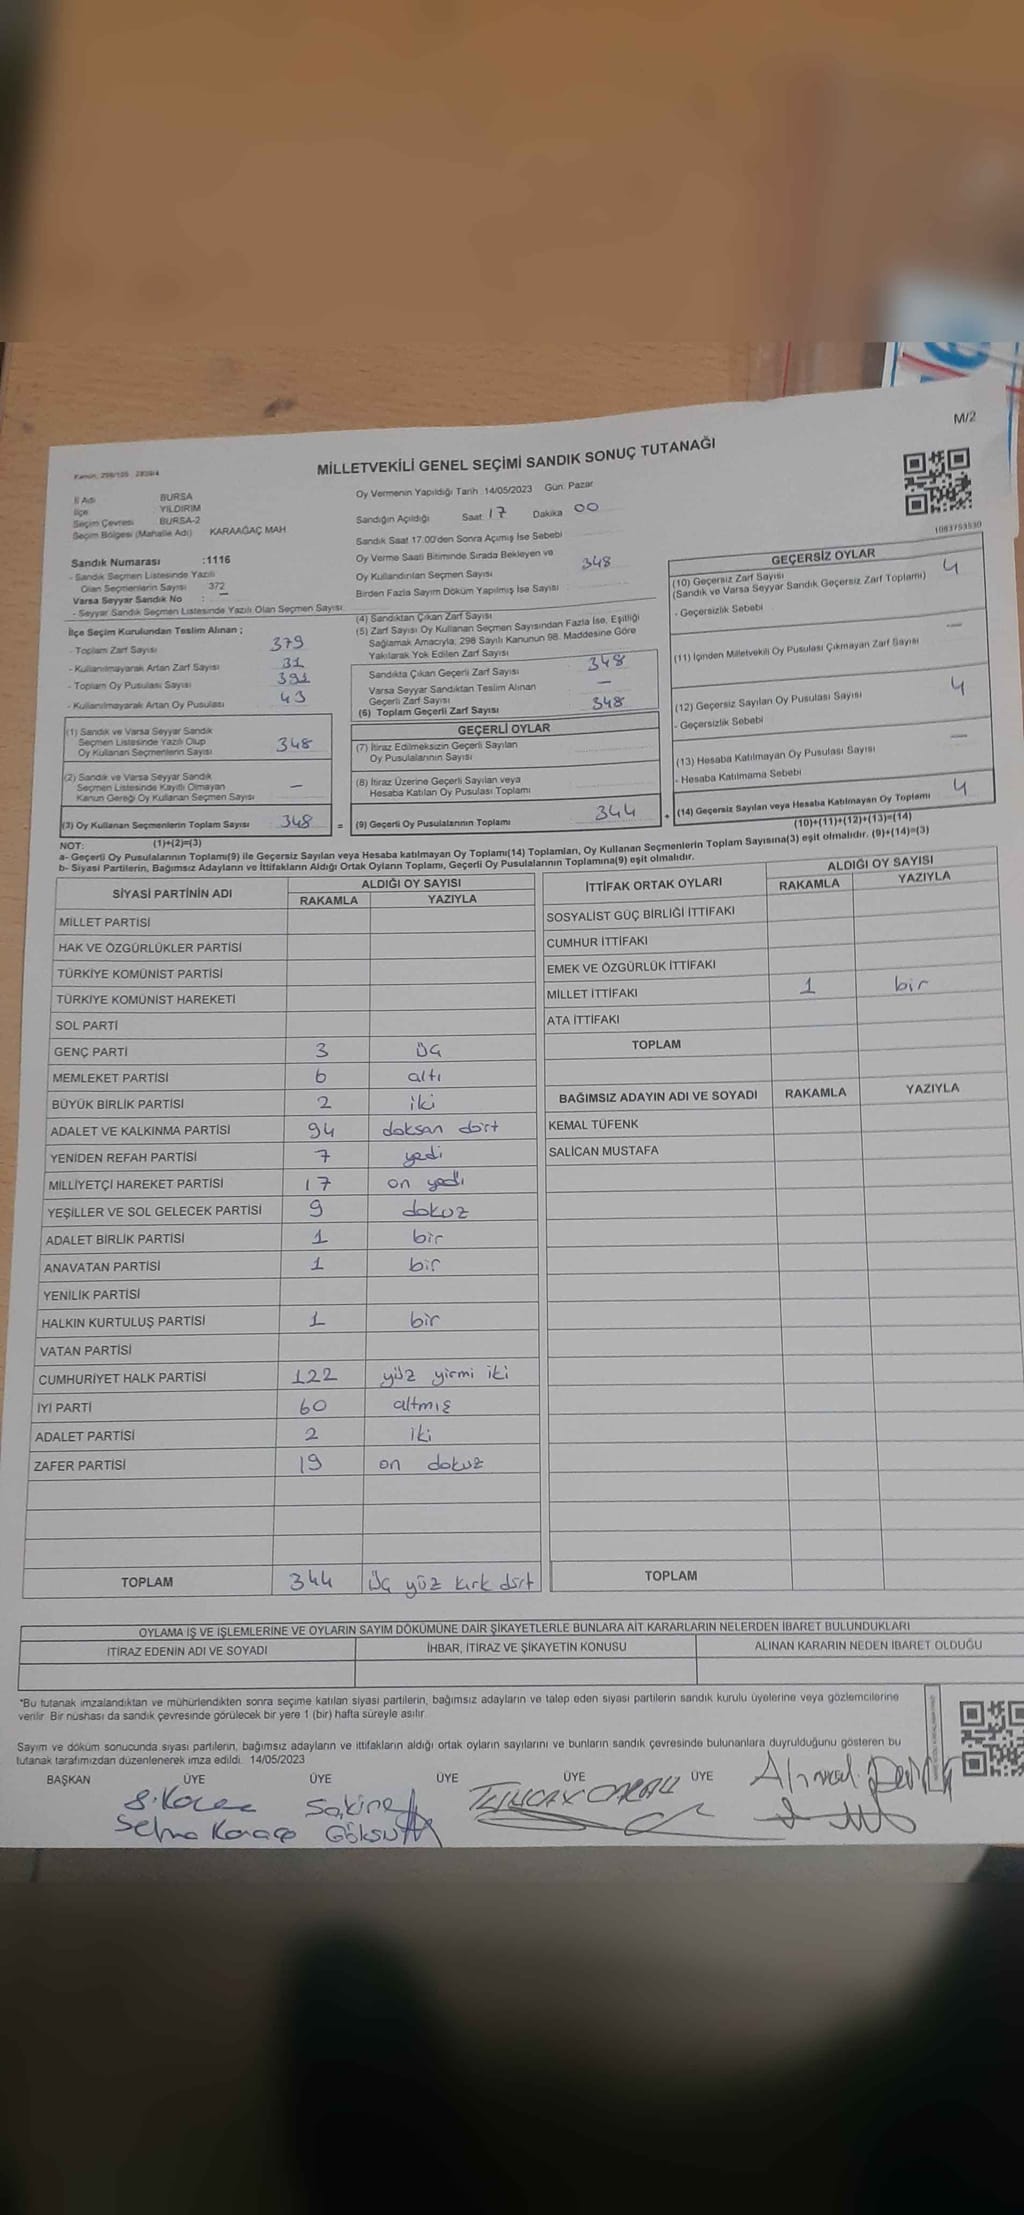 M/2
Kanun: 298/105 2839/4
MİLLETVEKİLİ GENEL SEÇİMİ SANDIK SONUÇ TUTANAĞI
İl Adı : BURSA
İlçe : YILDIRIM
Seçim Çevresi : BURSA-2
Seçim Bölgesi (Mahalle Adı) KARAAĞAÇ MAH
Oy Vermenin Yapıldığı Tarih :14/05/2023 Gün: Pazar
Sandığın Açıldığı Saat 17 Dakika 00
Sandık Saat 17.00'den Sonra Açımış İse Sebebi
Oy Verme Saati Bitiminde Sırada Bekleyen ve
Oy Kullandırılan Seçmen Sayısı 348
Birden Fazla Sayım Döküm Yapılmış İse Sayısı
1083753530
Sandık Numarası :1116
- Sandık Seçmen Listesinde Yazılı
Olan Seçmenlerin Sayısı 372
Varsa Seyyar Sandık No : —
- Seyyar Sandık Seçmen Listesinde Yazılı Olan Seçmen Sayısı:
İlçe Seçim Kurulundan Teslim Alınan ;
- Toplam Zarf Sayısı 379
- Kullanılmayarak Artan Zarf Sayısı 31
- Toplam Oy Pusulası Sayısı 391
- Kullanılmayarak Artan Oy Pusulası 43
(1) Sandık ve Varsa Seyyar Sandık
Seçmen Listesinde Yazılı Olup
Oy Kullanan Seçmenlerin Sayısı 348
(2) Sandık ve Varsa Seyyar Sandık
Seçmen Listesinde Kayıtlı Olmayan
Kanun Gereği Oy Kullanan Seçmen Sayısı —
(3) Oy Kullanan Seçmenlerin Toplam Sayısı 348 =
(1)+(2)=(3)
(4) Sandıktan Çıkan Zarf Sayısı
(5) Zarf Sayısı Oy Kullanan Seçmen Sayısından Fazla İse, Eşitliği
Sağlamak Amacıyla, 298 Sayılı Kanunun 98. Maddesine Göre
Yakılarak Yok Edilen Zarf Sayısı
Sandıkta Çıkan Geçerli Zarf Sayısı 348
Varsa Seyyar Sandıktan Teslim Alınan
Geçerli Zarf Sayısı —
(6) Toplam Geçerli Zarf Sayısı 348
GEÇERLİ OYLAR
(7) İtiraz Edilmeksizin Geçerli Sayılan
Oy Pusulalarının Sayısı
(8) İtiraz Üzerine Geçerli Sayılan veya
Hesaba Katılan Oy Pusulası Toplamı
(9) Geçerli Oy Pusulalarının Toplamı 344 +
GEÇERSİZ OYLAR
(10) Geçersiz Zarf Sayısı 4
(Sandık ve Varsa Seyyar Sandık Geçersiz Zarf Toplamı)
- Geçersizlik Sebebi
(11) İçinden Milletvekili Oy Pusulası Çıkmayan Zarf Sayısı —
(12) Geçersiz Sayılan Oy Pusulası Sayısı 4
- Geçersizlik Sebebi
(13) Hesaba Katılmayan Oy Pusulası Sayısı —
- Hesaba Katılmama Sebebi
(14) Geçersiz Sayılan veya Hesaba Katılmayan Oy Toplamı 4
(10)+(11)+(12)+(13)=(14)
NOT:
a- Geçerli Oy Pusulalarının Toplamı(9) ile Geçersiz Sayılan veya Hesaba katılmayan Oy Toplamı(14) Toplamları, Oy Kullanan Seçmenlerin Toplam Sayısına(3) eşit olmalıdır. (9)+(14)=(3)
b- Siyasi Partilerin, Bağımsız Adayların ve İttifakların Aldığı Ortak Oyların Toplamı, Geçerli Oy Pusulalarının Toplamına(9) eşit olmalıdır.
SİYASİ PARTİNİN ADI ALDIĞI OY SAYISI
RAKAMLA YAZIYLA
MİLLET PARTİSİ
HAK VE ÖZGÜRLÜKLER PARTİSİ
TÜRKİYE KOMÜNİST PARTİSİ
TÜRKİYE KOMÜNİST HAREKETİ
SOL PARTİ
GENÇ PARTİ 3 üç
MEMLEKET PARTİSİ 6 altı
BÜYÜK BİRLİK PARTİSİ 2 iki
ADALET VE KALKINMA PARTİSİ 94 doksan dört
YENİDEN REFAH PARTİSİ 7 yedi
MİLLİYETÇİ HAREKET PARTİSİ 17 on yedi
YEŞİLLER VE SOL GELECEK PARTİSİ 9 dokuz
ADALET BİRLİK PARTİSİ 1 bir
ANAVATAN PARTİSİ 1 bir
YENİLİK PARTİSİ
HALKIN KURTULUŞ PARTİSİ 1 bir
VATAN PARTİSİ
CUMHURİYET HALK PARTİSİ 122 yüz yirmi iki
İYİ PARTİ 60 altmış
ADALET PARTİSİ 2 iki
ZAFER PARTİSİ 19 on dokuz
TOPLAM 344 üç yüz kırk dört
İTTİFAK ORTAK OYLARI ALDIĞI OY SAYISI
RAKAMLA YAZIYLA
SOSYALİST GÜÇ BİRLİĞİ İTTİFAKI
CUMHUR İTTİFAKI
EMEK VE ÖZGÜRLÜK İTTİFAKI
MİLLET İTTİFAKI 1 bir
ATA İTTİFAKI
TOPLAM
BAĞIMSIZ ADAYIN ADI VE SOYADI RAKAMLA YAZIYLA
KEMAL TÜFENK
SALİCAN MUSTAFA
TOPLAM
OYLAMA İŞ VE İŞLEMLERİNE VE OYLARIN SAYIM DÖKÜMÜNE DAİR ŞİKAYETLERLE BUNLARA AİT KARARLARIN NELERDEN İBARET BULUNDUKLARI
İTİRAZ EDENİN ADI VE SOYADI İHBAR, İTİRAZ VE ŞİKAYETİN KONUSU ALINAN KARARIN NEDEN İBARET OLDUĞU
*Bu tutanak imzalandıktan ve mühürlendikten sonra seçime katılan siyasi partilerin, bağımsız adayların ve talep eden siyasi partilerin sandık kurulu üyelerine veya gözlemcilerine
verilir. Bir nüshası da sandık çevresinde görülecek bir yere 1 (bir) hafta süreyle asılır.
Sayım ve döküm sonucunda siyasi partilerin, bağımsız adayların ve ittifakların aldığı ortak oyların sayılarını ve bunların sandık çevresinde bulunanlara duyrulduğunu gösteren bu
tutanak tarafımızdan düzenlenerek imza edildi. 14/05/2023
BAŞKAN ÜYE ÜYE ÜYE ÜYE ÜYE
S.Koraç Sakine
Selma Koraç Göksu